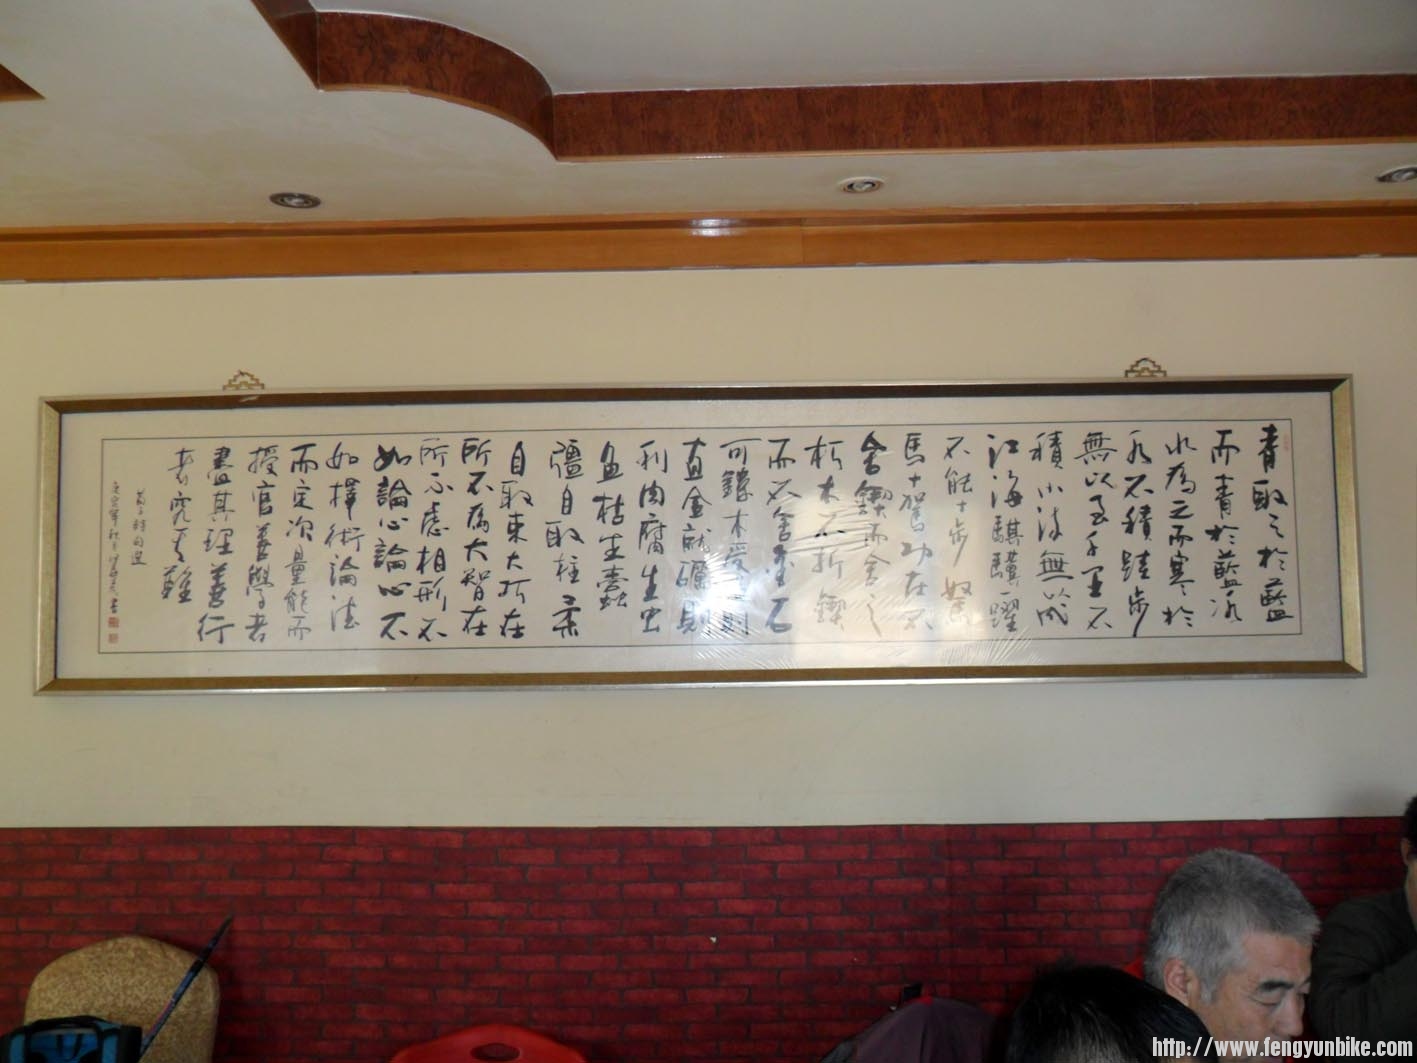 青取之於藍
而青於藍冰
水為之而寒於
水不積跬步
無以至千里不
積小流無以成
江海騏驥一躍
不能十步駑
馬十駕功在不
舍鍥而舍之
朽木不折鍥
而不舍金石
可鏤木受繩則
直金就礪則
利肉腐生虫
魚枯生蠹
彊自取柱柔
自取束大巧在
所不為大智在
所不慮相形不
如論心論心不
如擇術論德
而定次量能而
授官善學者
盡其理善行
者究其難
http://www.fengyunbike.com